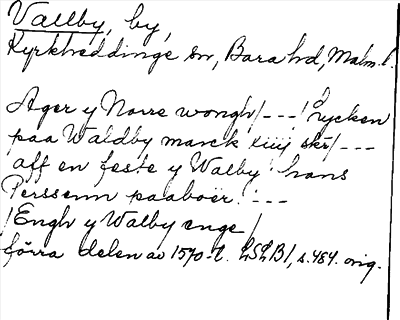 Vallby, by,
Kyrkheddinge sn, Bara hd, Malm. l.
Ager y Norre wongh/---/ Rycken
paa Waldby marck iiij skr/---
aff en feste y Walby hans
Perssenn paaboer. ---
/Engh y Walby enge/
förra delen av 1570-t. LSLB1, s. 484. orig.